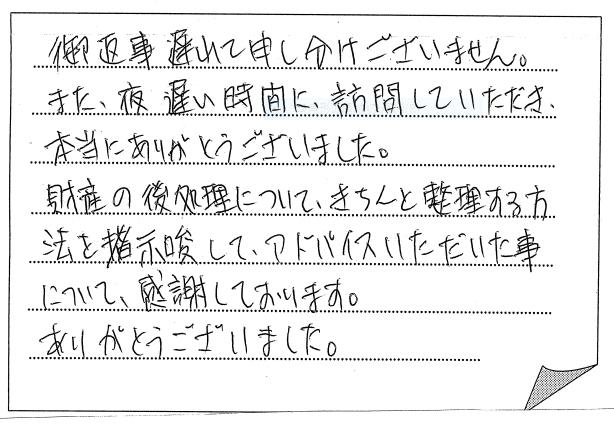 御返事遅れて申し分けございません。
また、夜遅い時間に、訪問していただき、
本当にありがとうございました。
財産の後処理について、きちんと整理する方
法を指示唆して、アドバイスいただいた事
について、感謝しております。
ありがとうございました。